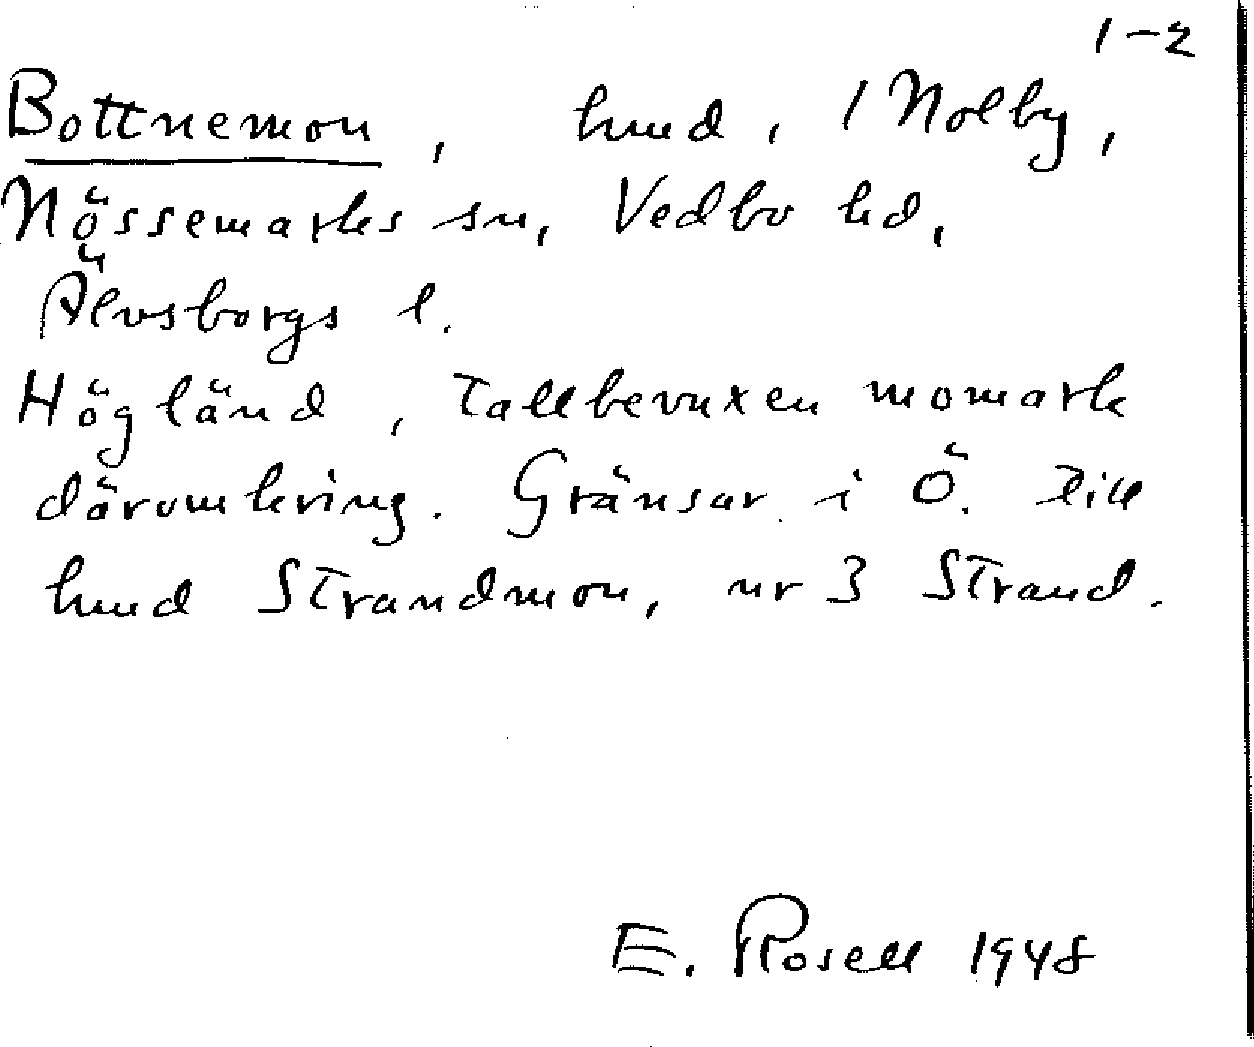 1-2
Bottnemon, hmd, 1 Nolby,
Nössemarks sn, Vedbo hd,
Älvsborgs l.
Högländ, tallbevuxen momark
däromkring. Gränsar i Ö. till
hmd Strandmon, nr 3 Strand.
E. Rosell 1948